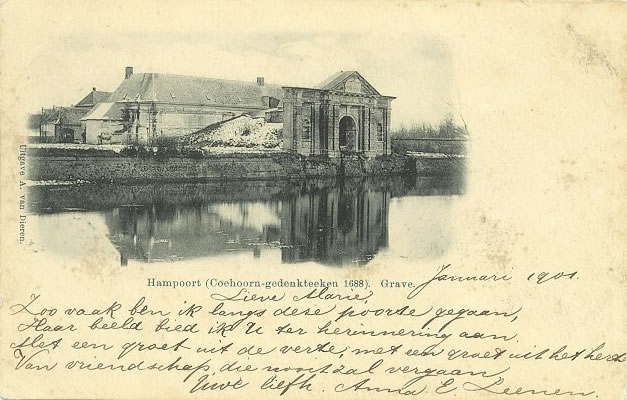 Uitgave A. van Dieren.
Hampoort (Coehoorn-gedenkteeken 1688). Grave.
Januari 1901.
Lieve Marie,
Zoo vaak ben ik langs dese poorte gegaan,
Haar beeld bied ik U ter herinnering aan.
Met een groet uit de verte, met een groet uit het hart
Van vriendschap, die nooit zal vergaan,
Uwe liefh. Anna E. Leenen.